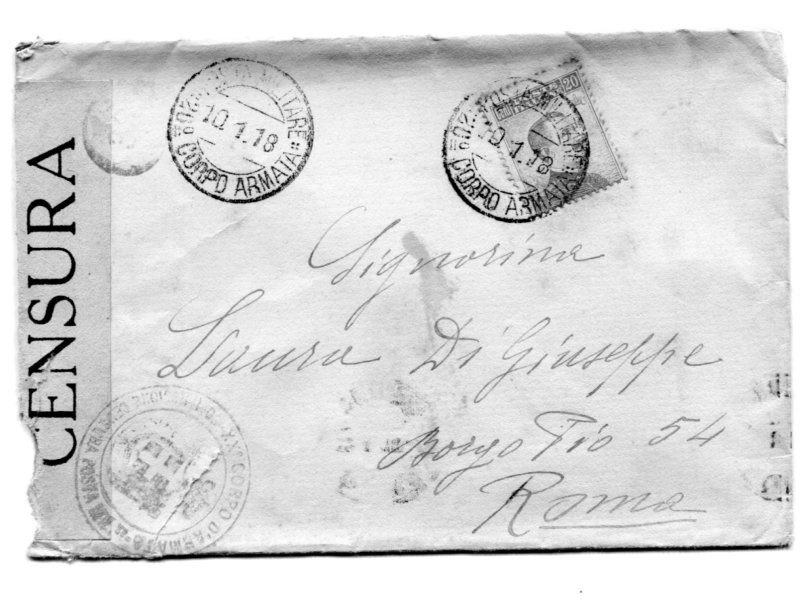 CENSURA
POSTA MILITARE
10.1.18
CORPO ARMATA
20
POSTA MILITARE
10.1.18
CORPO ARMATA
Signorina
Laura Di Giuseppe
Borgo Pio 54
Roma
CORPO D'ARMATA
POSTA